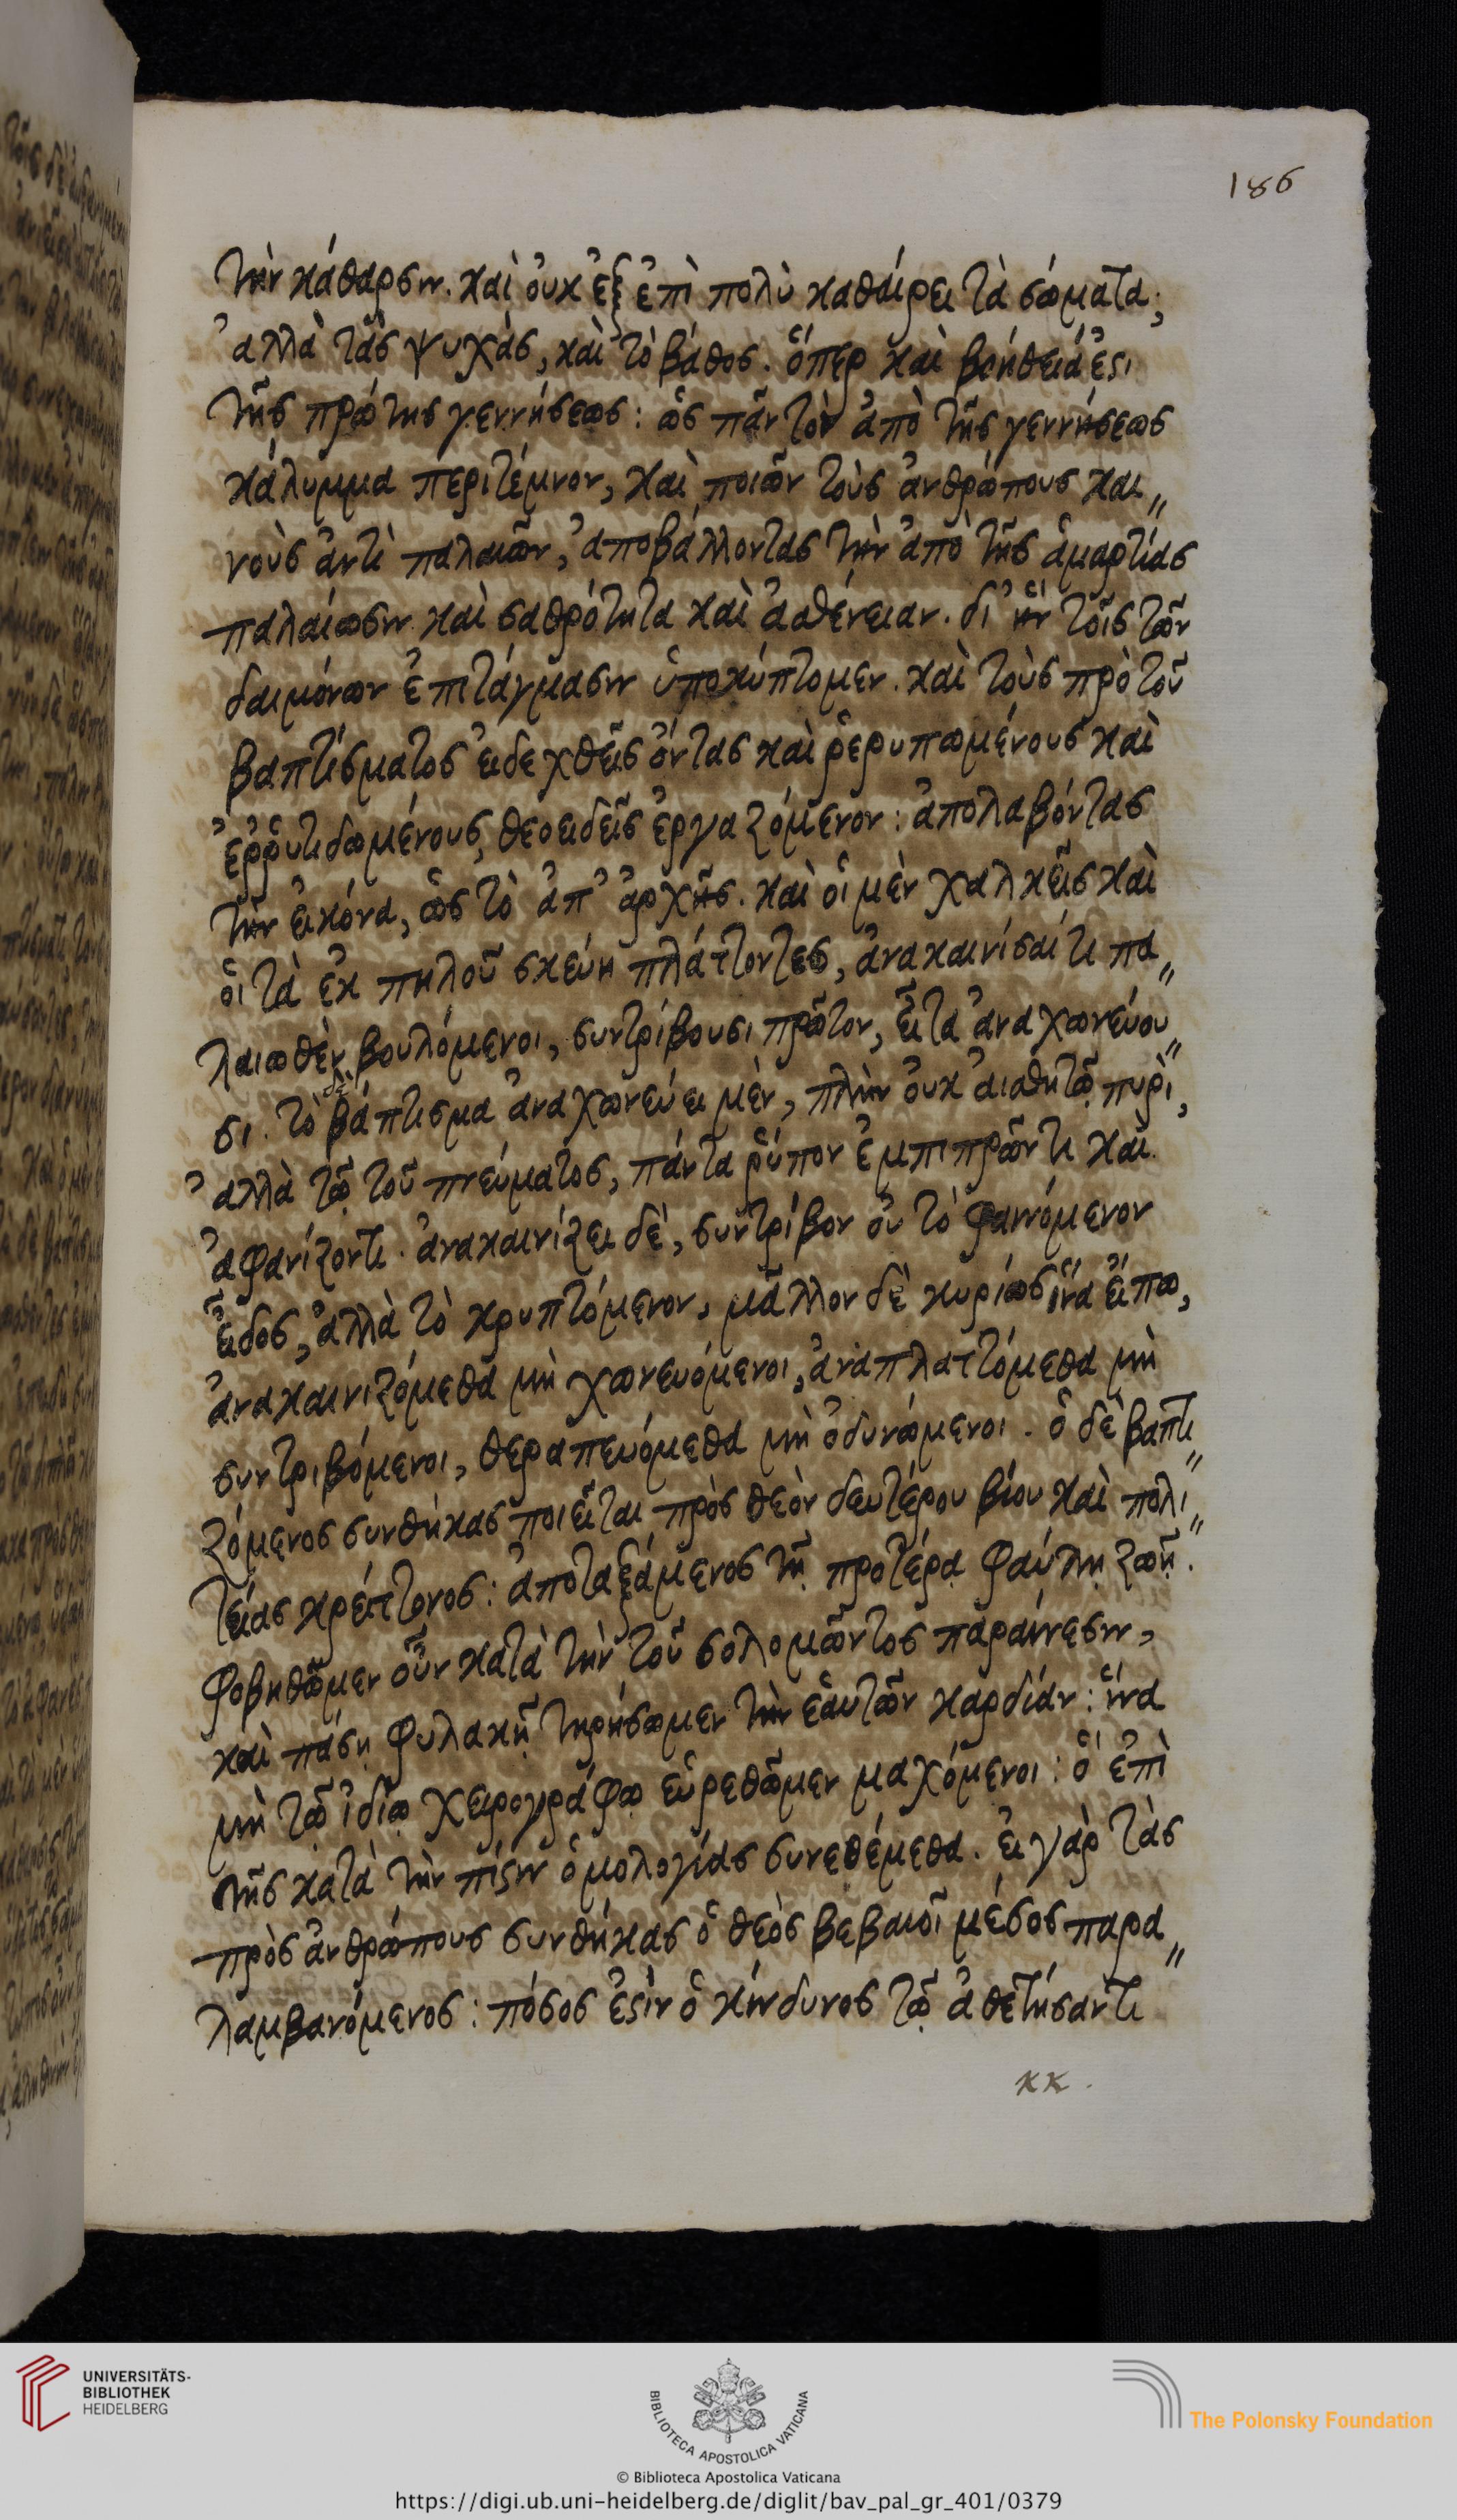 186
τὴν κάθαρσιν. καὶ οὐκ ἐξ ἐπὶ πολὺ καθαίρει τὰ σώματα,
ἀλλὰ τὰς ψυχὰς, καὶ τὸ βάθος. ὅπερ καὶ βοήθειά ἐστι
τῆς πρώτης γεννήσεως: ὡς πᾶν τὸν ἀπὸ τῆς γεννήσεως
κάλυμμα περιτέμνον, καὶ ποιῶν τοὺς ἀνθρώπους και„
νοὺς ἀντὶ παλαιῶν, ἀποβάλλοντας τὴν ἀπὸ τῆς ἁμαρτίας
παλαίωσιν καὶ σαθρότητα καὶ ἀσθένειαν. δι' ἣν τοῖς τῶν
δαιμόνων ἐπιτάγμασιν ὑποκύπτομεν. καὶ τοὺς πρὸ τοῦ
βαπτίσματος εἰδεχθεῖς ὄντας καὶ ῥερυπωμένους καὶ
ἐῤῥυτιδωμένους, θεοειδεῖς ἐργαζόμενον: ἀπολαβόντας
τὴν εἰκόνα, ὡς τὸ ἀπ' ἀρχῆς. καὶ οἱ μὲν χαλκεῖς καὶ
οἱ τὰ ἐκ πηλοῦ σκεύη πλάττοντες, ἀνακαινίσαί τι πα„
λαιωθὲν βουλόμενοι, συντρίβουσι πρῶτον, εἶτα ἀναχωνεύου„
σι. τὸ δὲ βάπτισμα ἀναχωνεύει μὲν, πλὴν οὐκ αἰσθητῷ πυρὶ,
ἀλλὰ τῷ τοῦ πνεύματος, πάντα ῥύπον ἐμπιπρῶντι καὶ
ἀφανίζοντι. ἀνακαινίζει δὲ, συντρίβον οὐ τὸ φαινόμενον
εἶδος, ἀλλὰ τὸ κρυπτόμενον, μᾶλλον δὲ κυρίως ἵνα εἴπω,
ἀνακαινιζόμεθα μὴ χωνευόμενοι, ἀναπλαττόμεθα μὴ
συντριβόμενοι, θεραπευόμεθα μὴ ὀδυνώμενοι. ὁ δὲ βαπτι„
ζόμενος συνθήκας ποιεῖται πρὸς θεὸν δευτέρου βίου καὶ πολι„
τείας κρείττονος: ἀποταξάμενος τῇ προτέρᾳ φαύλῃ ζωῇ.
φοβηθῶμεν οὖν κατὰ τὴν τοῦ σολομῶντος παραίνεσιν,
καὶ πάσῃ φυλακῇ τηρήσωμεν τὴν ἑαυτῶν καρδίαν: ἵνα
μὴ τῷ ἰδίῳ χειρογράφῳ εὑρεθῶμεν μαχόμενοι: ὃ ἐπὶ
τῆς κατὰ τὴν πίστιν ὁμολογίας συνεθέμεθα. εἰ γὰρ τὰς
πρὸς ἀνθρώπους συνθήκας ὁ θεὸς βεβαιοῖ μέσος παρα„
λαμβανόμενος: πόσος ἐστὶν ὁ κίνδυνος τῷ ἀθετήσαντι
κκ.
UNIVERSITÄTS-
BIBLIOTHEK
HEIDELBERG
BIBLIOTECA APOSTOLICA VATICANA
The Polonsky Foundation
© Biblioteca Apostolica Vaticana
https://digi.ub.uni-heidelberg.de/diglit/bav_pal_gr_401/0379